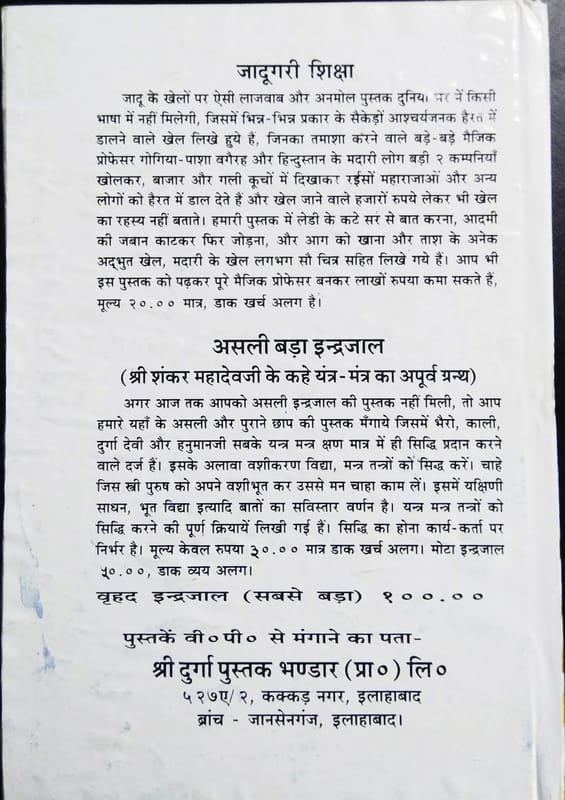 जादूगरी शिक्षा
जादू के खेलों पर ऐसी लाजवाब और अनमोल पुस्तक दुनिया भर में किसी
भाषा में नहीं मिलेगी, जिसमें भिन्न-भिन्न प्रकार के सैकेड़ों आश्चर्यजनक हैरत में
डालने वाले खेल लिखे हुये हैं, जिनका तमाशा करने वाले बड़े-बड़े मैजिक
प्रोफेसर गोगिया-पाशा वगैरह और हिन्दुस्तान के मदारी लोग बड़ी २ कम्पनियाँ
खोलकर, बाजार और गली कूचों में दिखाकर रईसों महाराजाओं और अन्य
लोगों को हैरत में डाल देते हैं और खेल जाने वाले हजारों रुपये लेकर भी खेल
का रहस्य नहीं बताते। हमारी पुस्तक में लेडी के कटे सर से बात करना, आदमी
की जबान काटकर फिर जोड़ना, और आग को खाना और ताश के अनेक
अद्भुत खेल, मदारी के खेल लगभग सौ चित्र सहित लिखे गये हैं। आप भी
इस पुस्तक को पढ़कर पूरे मैजिक प्रोफेसर बनकर लाखों रुपया कमा सकते हैं,
मूल्य २०.०० मात्र, डाक खर्च अलग है।
असली बड़ा इन्द्रजाल
(श्री शंकर महादेवजी के कहे यंत्र-मंत्र का अपूर्व ग्रन्थ)
अगर आज तक आपको असली इन्द्रजाल की पुस्तक नहीं मिली, तो आप
हमारे यहाँ के असली और पुराने छाप की पुस्तक मँगाये जिसमें भैरो, काली,
दुर्गा देवी और हनुमानजी सबके यन्त्र मन्त्र क्षण मात्र में ही सिद्धि प्रदान करने
वाले दर्ज हैं। इसके अलावा वशीकरण विद्या, मन्त्र तन्त्रों को सिद्ध करें। चाहे
जिस स्त्री पुरुष को अपने वशीभूत कर उससे मन चाहा काम लें। इसमें यक्षिणी
साधन, भूत विद्या इत्यादि बातों का सविस्तार वर्णन है। यन्त्र मन्त्र तन्त्रों को
सिद्धि करने की पूर्ण क्रियायें लिखी गई हैं। सिद्धि का होना कार्य-कर्ता पर
निर्भर है। मूल्य केवल रुपया ३०.०० मात्र डाक खर्च अलग। मोटा इन्द्रजाल
५०.००, डाक व्यय अलग।
वृहद इन्द्रजाल (सबसे बड़ा) १००.००
पुस्तकें वी०पी० से मंगाने का पता-
श्री दुर्गा पुस्तक भण्डार (प्रा०) लि०
५२७ए/२, कक्कड़ नगर, इलाहाबाद
ब्रांच - जानसेनगंज, इलाहाबाद।